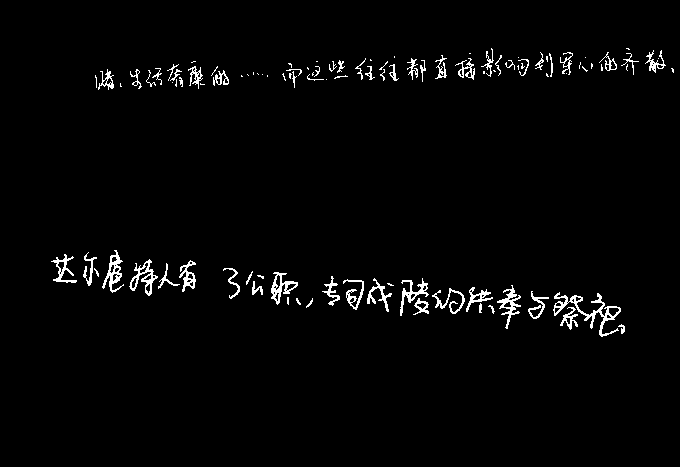 赌、生活奢糜的……而这些往往都直接影响到军心的齐散、
达尔扈特人有了公职,专司成陵的供奉与祭祀。